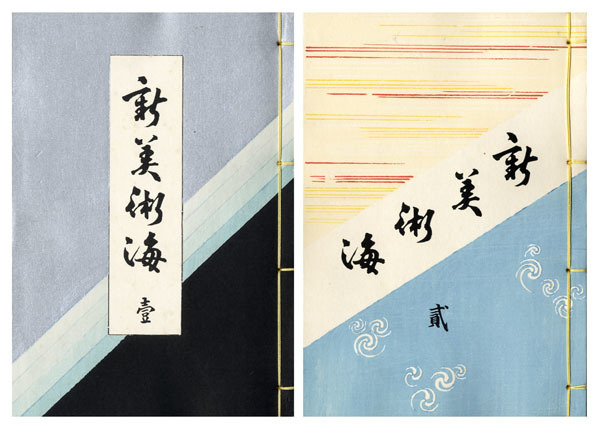 新美術海
壹
新美術海
貳